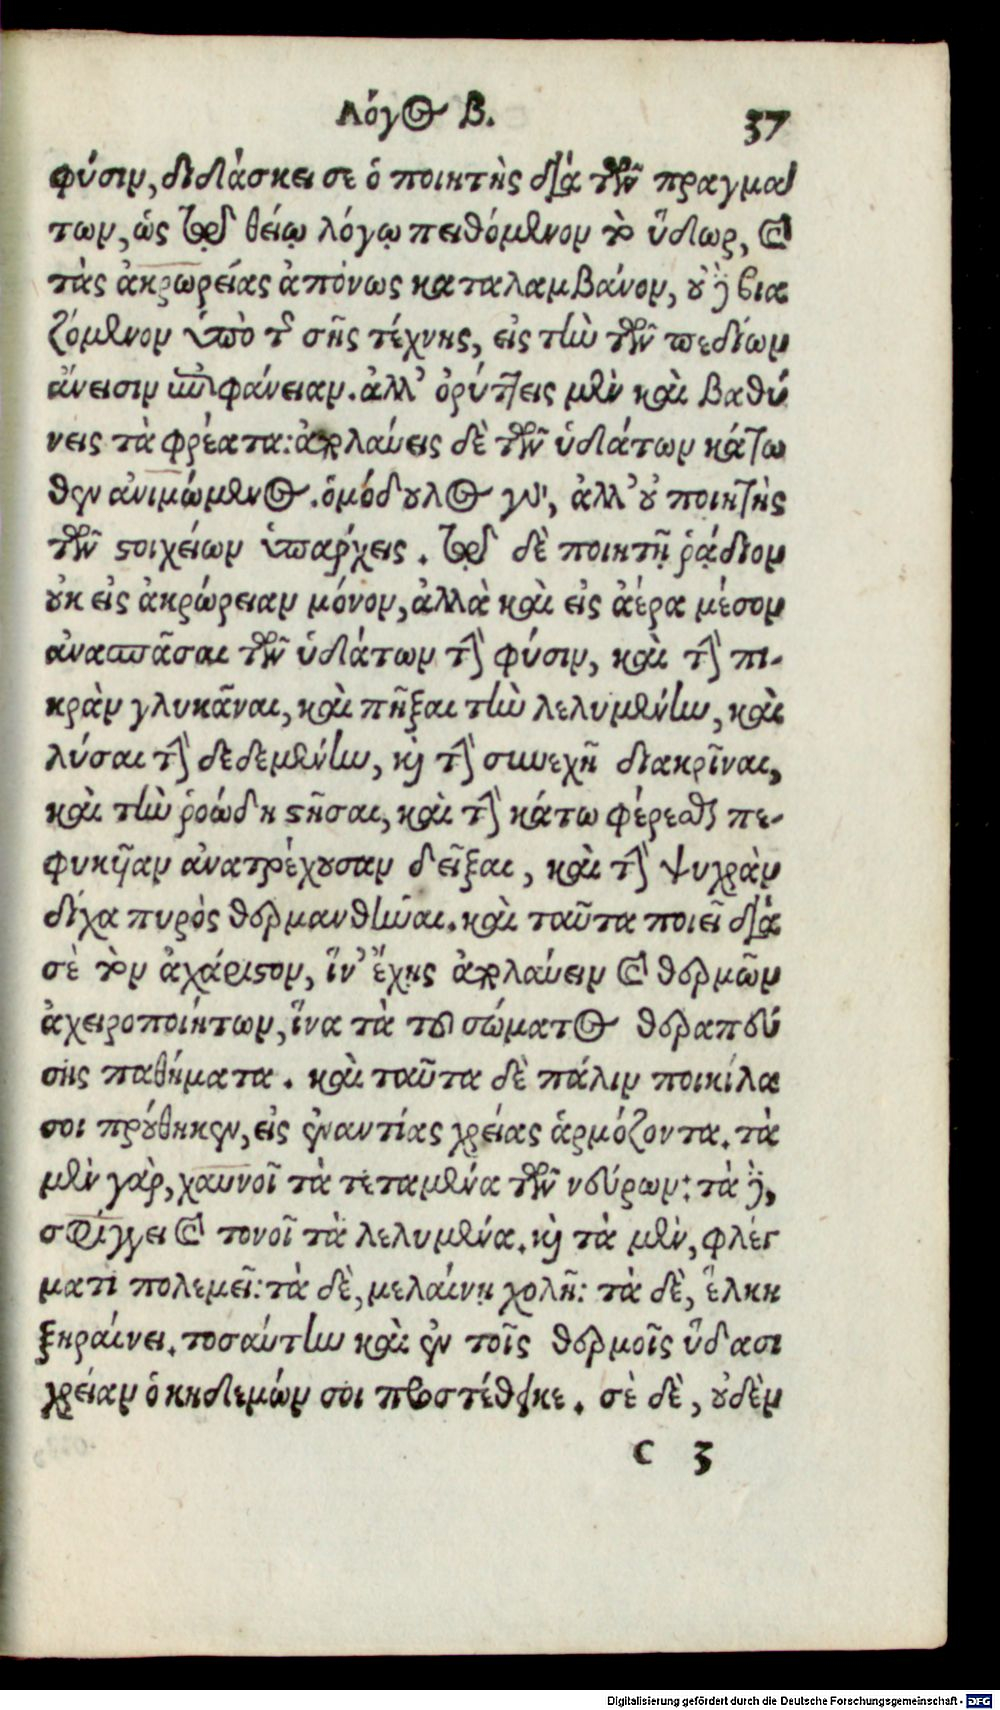 Λόγος Β. 37
φύσιν, διδάσκει σε ὁ ποιητὴς διὰ τῶν πραγμά
των, ὡς τῷ θείῳ λόγῳ πειθόμενον τὸ ὕδωρ, καὶ
τὰς ἀκρωρείας ἀπόνως καταλαμβάνον, οὐ δὲ βια
ζόμενον ὑπὸ τῆς σῆς τέχνης, εἰς τὴν τῶν πεδίων
ἄνεισιν ἐπιφάνειαν. ἀλλ' ὀρύττεις μὲν καὶ βαθύ
νεις τὰ φρέατα: ἀπολαύεις δὲ τῶν ὑδάτων κάτω
θεν ἀνιμώμενος. ὁμόδουλος γὰρ, ἀλλ' οὐ ποιητὴς
τῶν στοιχείων ὑπάρχεις. τῷ δὲ ποιητῇ ῥᾴδιον
οὐκ εἰς ἀκρώρειαν μόνον, ἀλλὰ καὶ εἰς ἀέρα μέσον
ἀνασπᾶσαι τῶν ὑδάτων τὴν φύσιν, καὶ τὴν πι-
κρὰν γλυκᾶναι, καὶ πῆξαι τὴν λελυμένην, καὶ
λύσαι τὴν δεδεμένην, καὶ τὴν συνεχῆ διακρῖναι,
καὶ τὴν ῥοώδη στῆσαι, καὶ τὴν κάτω φέρεσθαι πε-
φυκυῖαν ἀνατρέχουσαν δεῖξαι, καὶ τὴν ψυχρὰν
δίχα πυρὸς θερμανθῆναι. καὶ ταῦτα ποιεῖ διὰ
σὲ τὸν ἀχάριστον, ἵν' ἔχῃς ἀπολαύειν καὶ θερμῶν
ἀχειροποιήτων, ἵνα τὰ τοῦ σώματος θεραπεύ
σῃς παθήματα. καὶ ταῦτα δὲ πάλιν ποικίλα
σοι προύθηκεν, εἰς ἐναντίας χρείας ἁρμόζοντα. τὰ
μὲν γὰρ, χαυνοῖ τὰ τεταμένα τῶν νεύρων: τὰ δὲ,
σφίγγει καὶ τονοῖ τὰ λελυμένα. καὶ τὰ μὲν, φλέγ
ματι πολεμεῖ: τὰ δὲ, μελαίνῃ χολῇ: τὰ δὲ, ἕλκη
ξηραίνει. τοσαύτην καὶ ἐν τοῖς θερμοῖς ὕδασι
χρείαν ὁ κηδεμών σοι προστέθεικε. σὲ δὲ, οὐδὲν
c 3
Digitalisierung gefördert durch die Deutsche Forschungsgemeinschaft - DFG